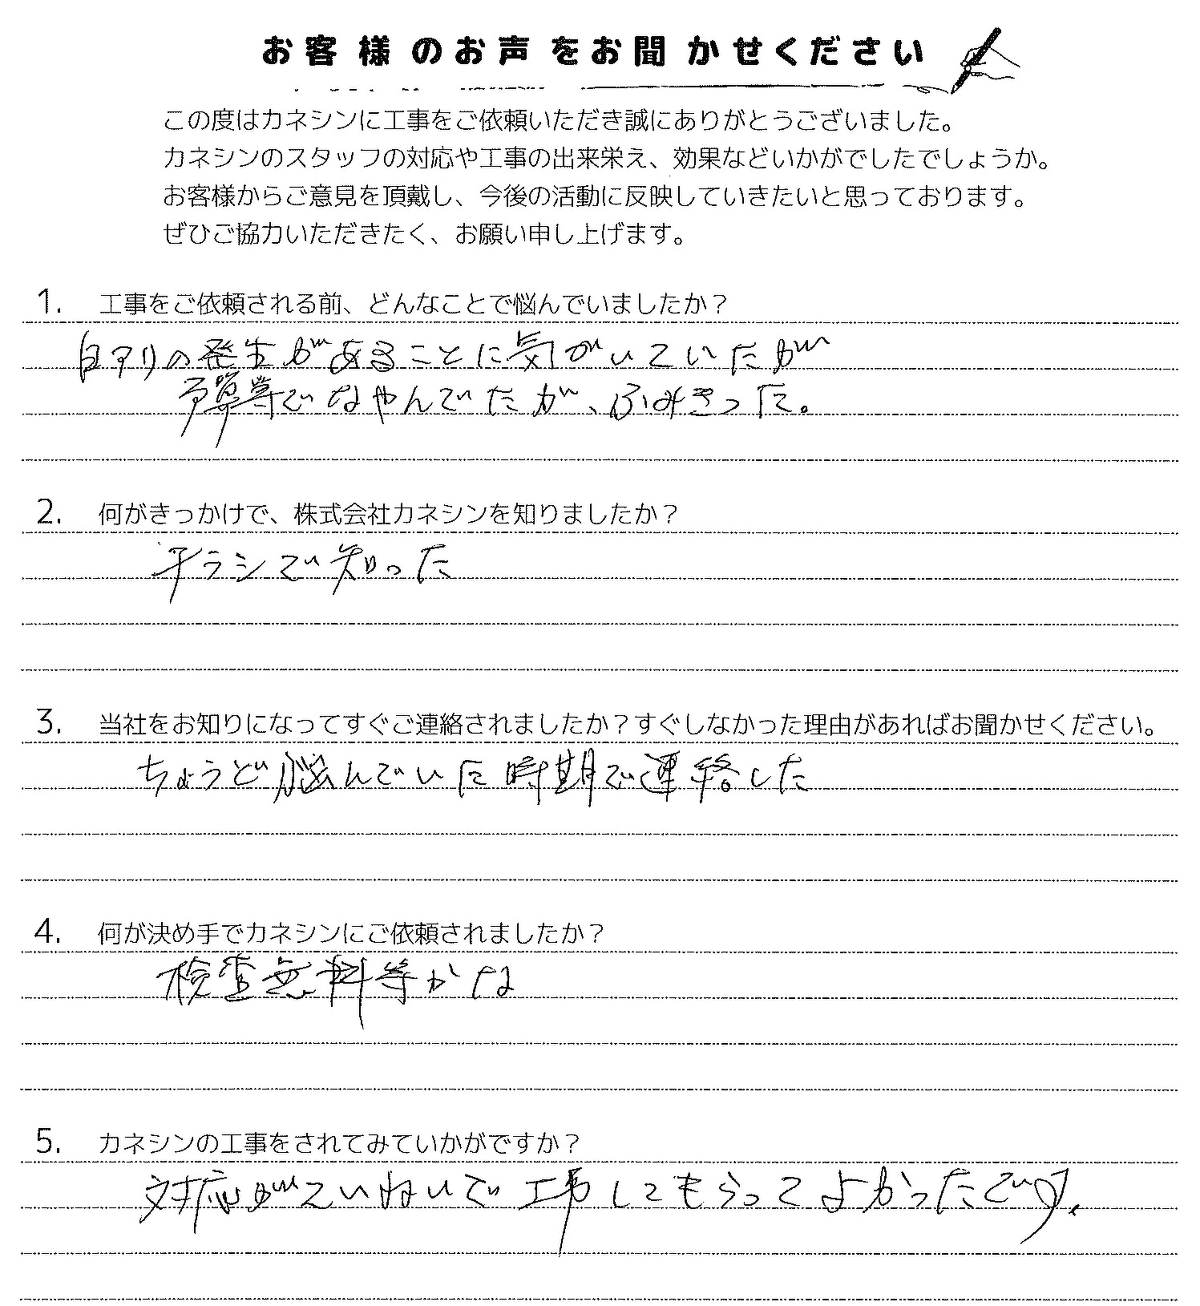 お客様のお声をお聞かせください
この度はカネシンに工事をご依頼いただき誠にありがとうございました。
カネシンのスタッフの対応や工事の出来栄え、効果などいかがでしたでしょうか。
お客様からご意見を頂戴し、今後の活動に反映していきたいと思っております。
ぜひご協力いただきたく、お願い申し上げます。
1. 工事をご依頼される前、どんなことで悩んでいましたか？
白アリの発生があることに気がいていたが
予算等でなやんでたが、ふみきった。
2. 何がきっかけで、株式会社カネシンを知りましたか？
チラシで知った
3. 当社をお知りになってすぐご連絡されましたか？すぐしなかった理由があればお聞かせください。
ちょうど悩んでいた時期で連絡した
4. 何が決め手でカネシンにご依頼されましたか？
検査無料等かな
5. カネシンの工事をされてみていかがですか？
対応がていねいで工事してもらってよかったです。